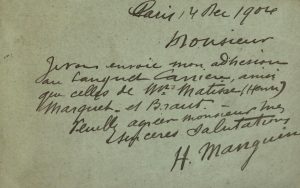 Paris 14 Dec 1904
Monsieur
Je vous envoie mon adhésion
au banquet Carriere, ainsi
que celles de Mrs Matisse (Henri)
Marquet et Braut.
Veuillez agréer monsieur mes
sincères salutations
H. Manguin